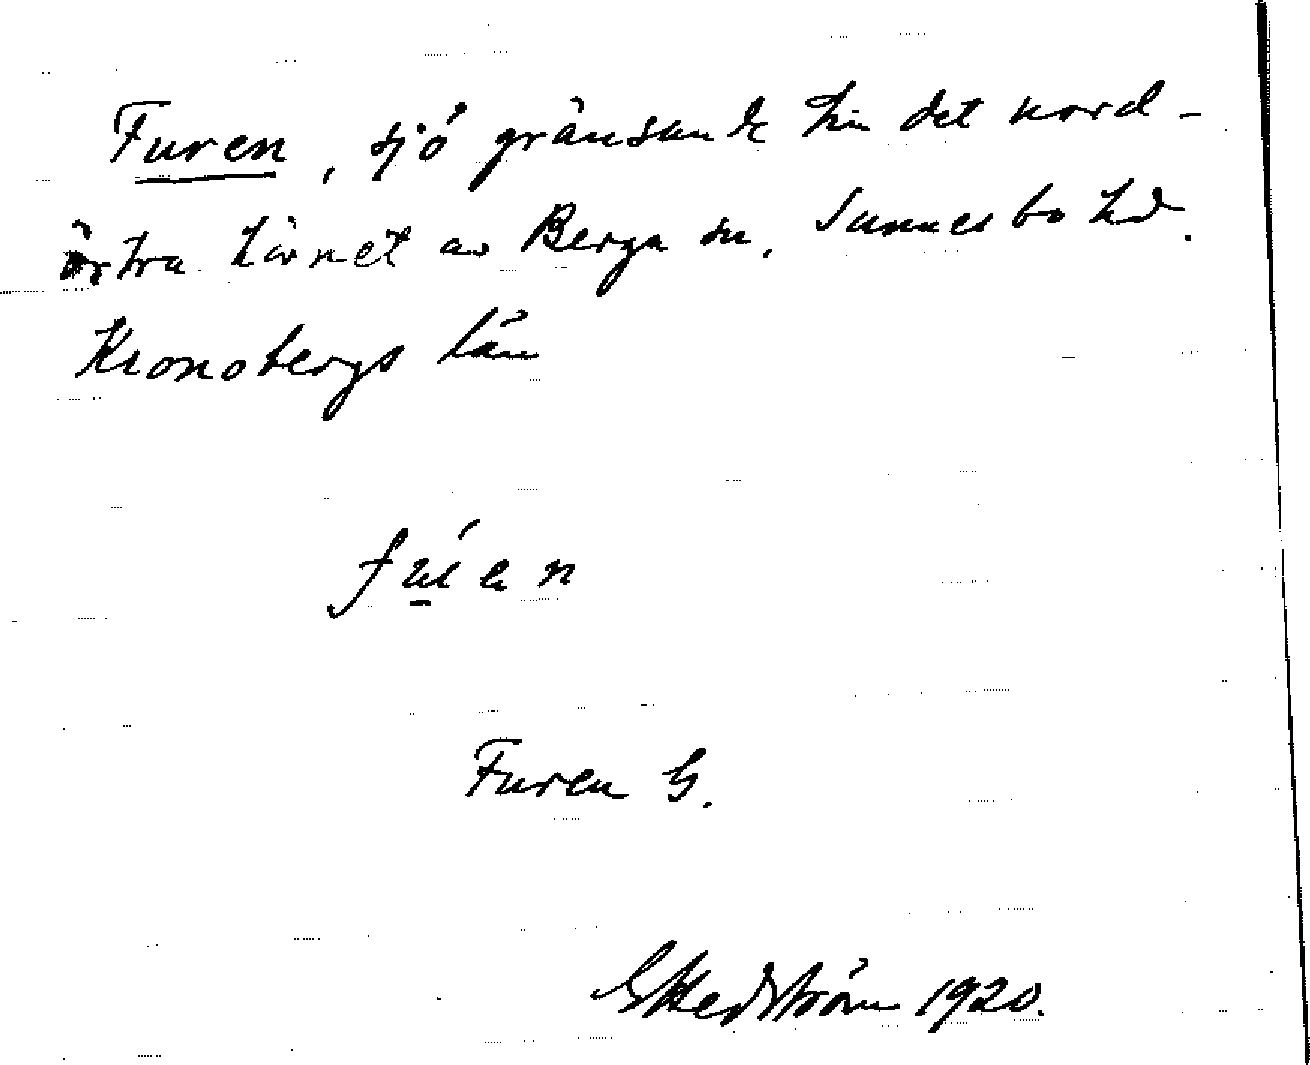 Furen, sjö gränsande till det nord-
östra hörnet av Berga sn, Sunnerbo hd.
Kronobergs län
Furen G.
GHedström 1920.